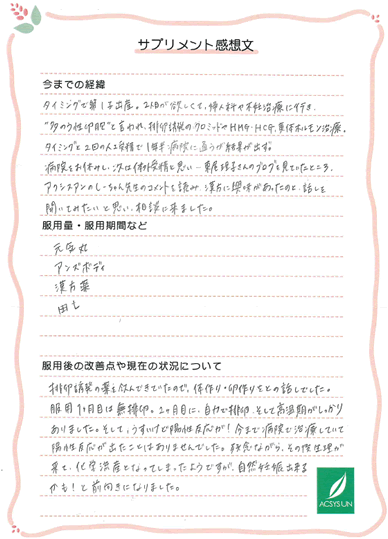 サプリメント感想文
今までの経緯
タイミングで第1子出産。2人目が欲しくて、婦人科や不妊治療に行き、
"多のう性卵胞"と言われ、排卵誘発のクロミッドやHMG・HCG、黄体ホルモン治療。
タイミングと2回の人工受精で1年半病院に通うが結果が出ず。
病院をお休みし、次は体外受精と思い…東尾理子さんのブログを見ていたところ、
アクシスアンのしーちゃん先生のコメントを読み、漢方に興味があったのと、話しを
聞いてみたいと思い、相談に来ました。
服用量・服用期間など
元気丸
アンズボディ
漢方薬
田七
服用後の改善点や現在の状況について
排卵誘発の薬を飲んできていたので、体作り・卵作りをとの話しでした。
服用1ヶ月目は無排卵。2ヶ月目に、自力で排卵、そして高温期がしっかり
ありました。そして、うすいけど陽性反応が！今まで病院で治療していて
陽性反応が出たことはありませんでした。残念ながら、その後生理が
来て、化学流産となってしまったようですが、自然妊娠出来る
かも！と前向きになりました。
ACSYSUN